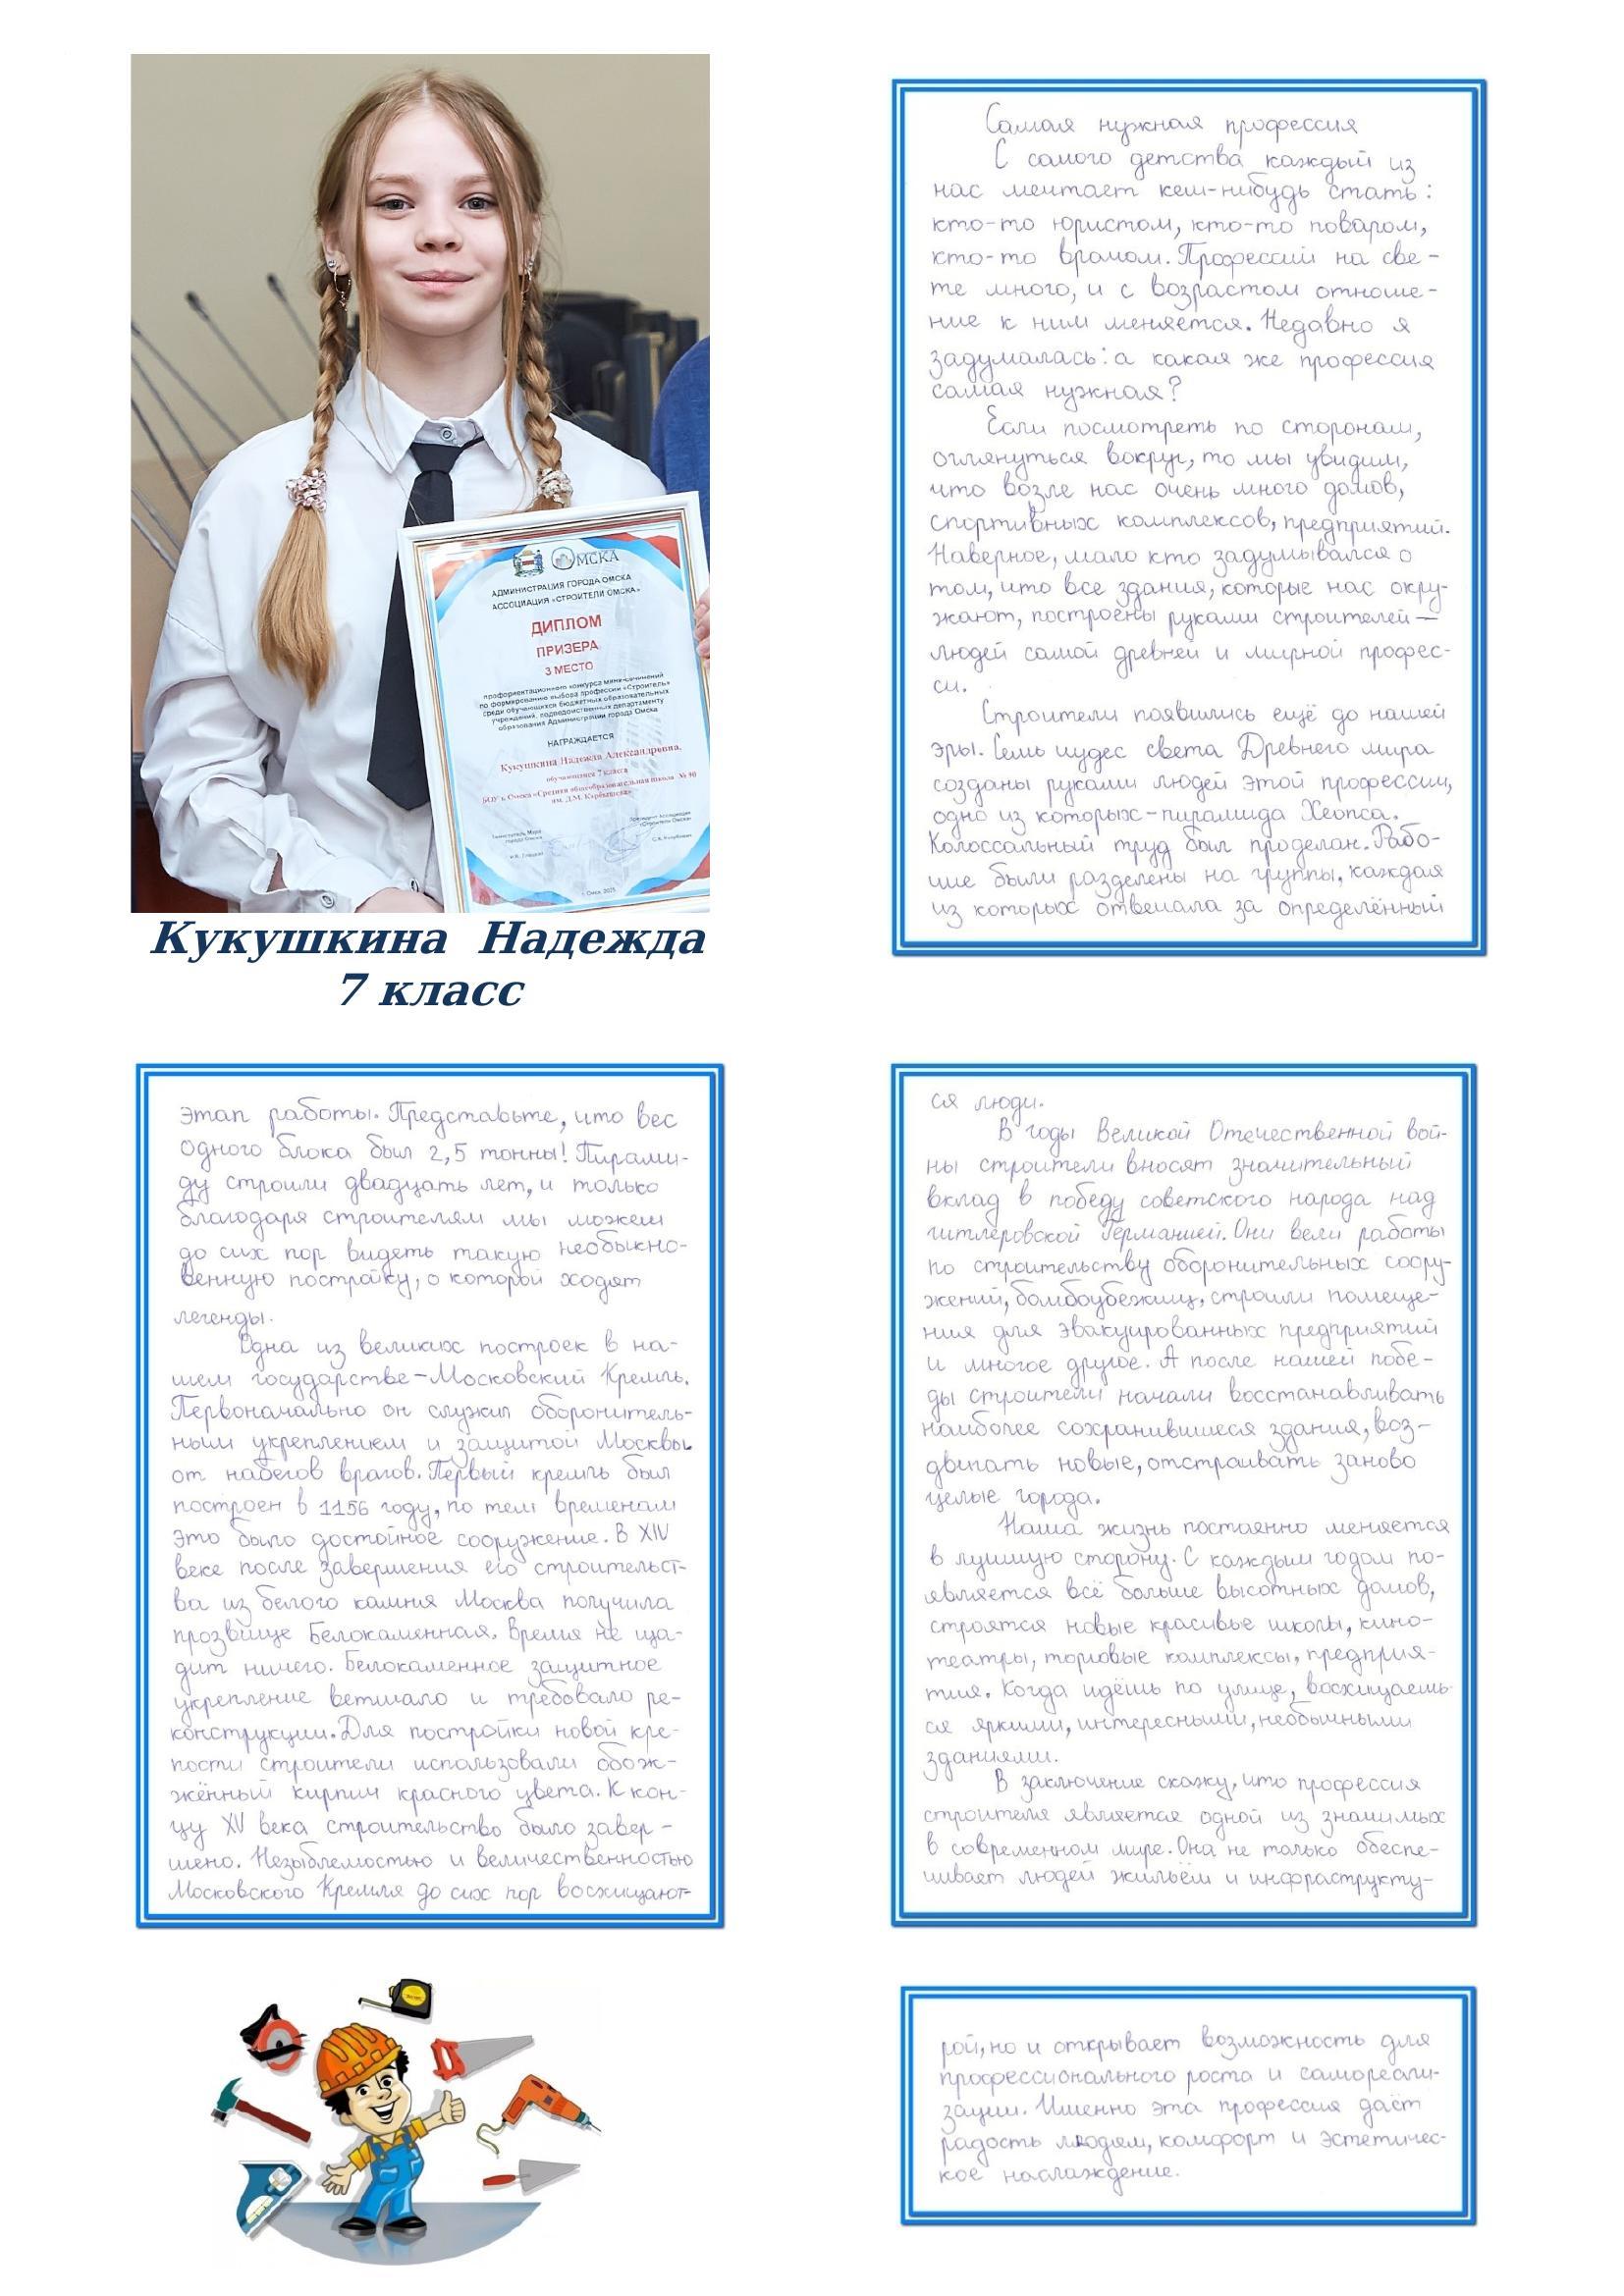 ОМСКА
АДМИНИСТРАЦИЯ ГОРОДА ОМСКА
АССОЦИАЦИЯ «СТРОИТЕЛИ ОМСКА»
ДИПЛОМ
ПРИЗЕРА
3 МЕСТО
профориентационного конкурса мини-сочинений
по формированию выбора профессии «Строитель»
среди обучающихся бюджетных образовательных
учреждений, подведомственных департаменту
образования Администрации города Омска
НАГРАЖДАЕТСЯ
Кукушкина Надежда Александровна,
обучающаяся 7 класса
БОУ г. Омска «Средняя общеобразовательная школа № 90
им. Д.М. Карбышева»
г. Омск, 2025
Кукушкина Надежда
7 класс
Самая нужная профессия
С самого детства каждый из
нас мечтает кем-нибудь стать:
кто-то юристом, кто-то поваром,
кто-то врачом. Профессий на све-
те много, и с возрастом отноше-
ние к ним меняется. Недавно я
задумалась: а какая же профессия
самая нужная?
Если посмотреть по сторонам,
оглянуться вокруг, то мы увидим,
что возле нас очень много домов,
спортивных комплексов, предприятий.
Наверное, мало кто задумывался о
том, что все здания, которые нас окру-
жают, построены руками строителей —
людей самой древней и мирной профес-
си.
Строители появились ещё до нашей
эры. Семь чудес света Древнего мира
созданы руками людей этой профессии,
одно из которых - пирамида Хеопса.
Колоссальный труд был проделан. Рабо-
чие были разделены на группы, каждая
из которых отвечала за определённый
этап работы. Представьте, что вес
одного блока был 2,5 тонны! Пирами-
ду строили двадцать лет, и только
благодаря строителям мы можем
до сих пор видеть такую необыкно-
венную постройку, о которой ходят
легенды.
Одна из великих построек в на-
шем государстве - Московский Кремль.
Первоначально он служил оборонитель-
ным укреплением и защитой Москвы
от набегов врагов. Первый кремль был
построен в 1156 году, по тем временам
это было достойное сооружение. В XIV
веке после завершения его строительст-
ва из белого камня Москва получила
прозвище Белокаменная. Время не ща-
дит ничего. Белокаменное защитное
укрепление ветшало и требовало ре-
конструкции. Для постройки новой кре-
пости строители использовали обож-
жённый кирпич красного цвета. К кон-
цу XV века строительство было завер-
шено. Незыблемостью и величественностью
Московского Кремля до сих пор восхищают-
ся люди.
В годы Великой Отечественной вой-
ны строители вносят значительный
вклад в победу советского народа над
гитлеровской Германией. Они вели работы
по строительству оборонительных соору-
жений, бомбоубежищ, строили помеще-
ния для эвакуированных предприятий
и многое другое. А после нашей побе-
ды строители начали восстанавливать
наиболее сохранившиеся здания, воз-
двигать новые, отстраивать заново
целые города.
Наша жизнь постоянно меняется
в лучшую сторону. С каждым годом по-
является всё больше высотных домов,
строятся новые красивые школы, кино-
театры, торговые комплексы, предприя-
тия. Когда идёшь по улице, восхищаешь-
ся яркими, интересными, необычными
зданиями.
В заключение скажу, что профессия
строителя является одной из значимых
в современном мире. Она не только обеспе-
чивает людей жильём и инфраструкту-
рой, но и открывает возможность для
профессионального роста и самореали-
зации. Именно эта профессия даёт
радость людям, комфорт и эстетичес-
кое наслаждение.